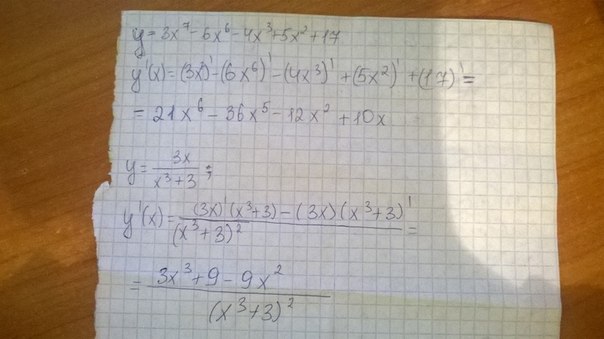 y = 3x⁷ - 6x⁶ - 4x³ + 5x² + 17
y'(x) = (3x)' - (6x⁶)' - (4x³)' + (5x²)' + (17)' =
= 21x⁶ - 36x⁵ - 12x² + 10x
y = 3x / (x³ + 3) ;
y'(x) = ((3x)'(x³+3) - (3x)(x³+3)') / (x³+3)² =
= (3x³ + 9 - 9x²) / (x³+3)²